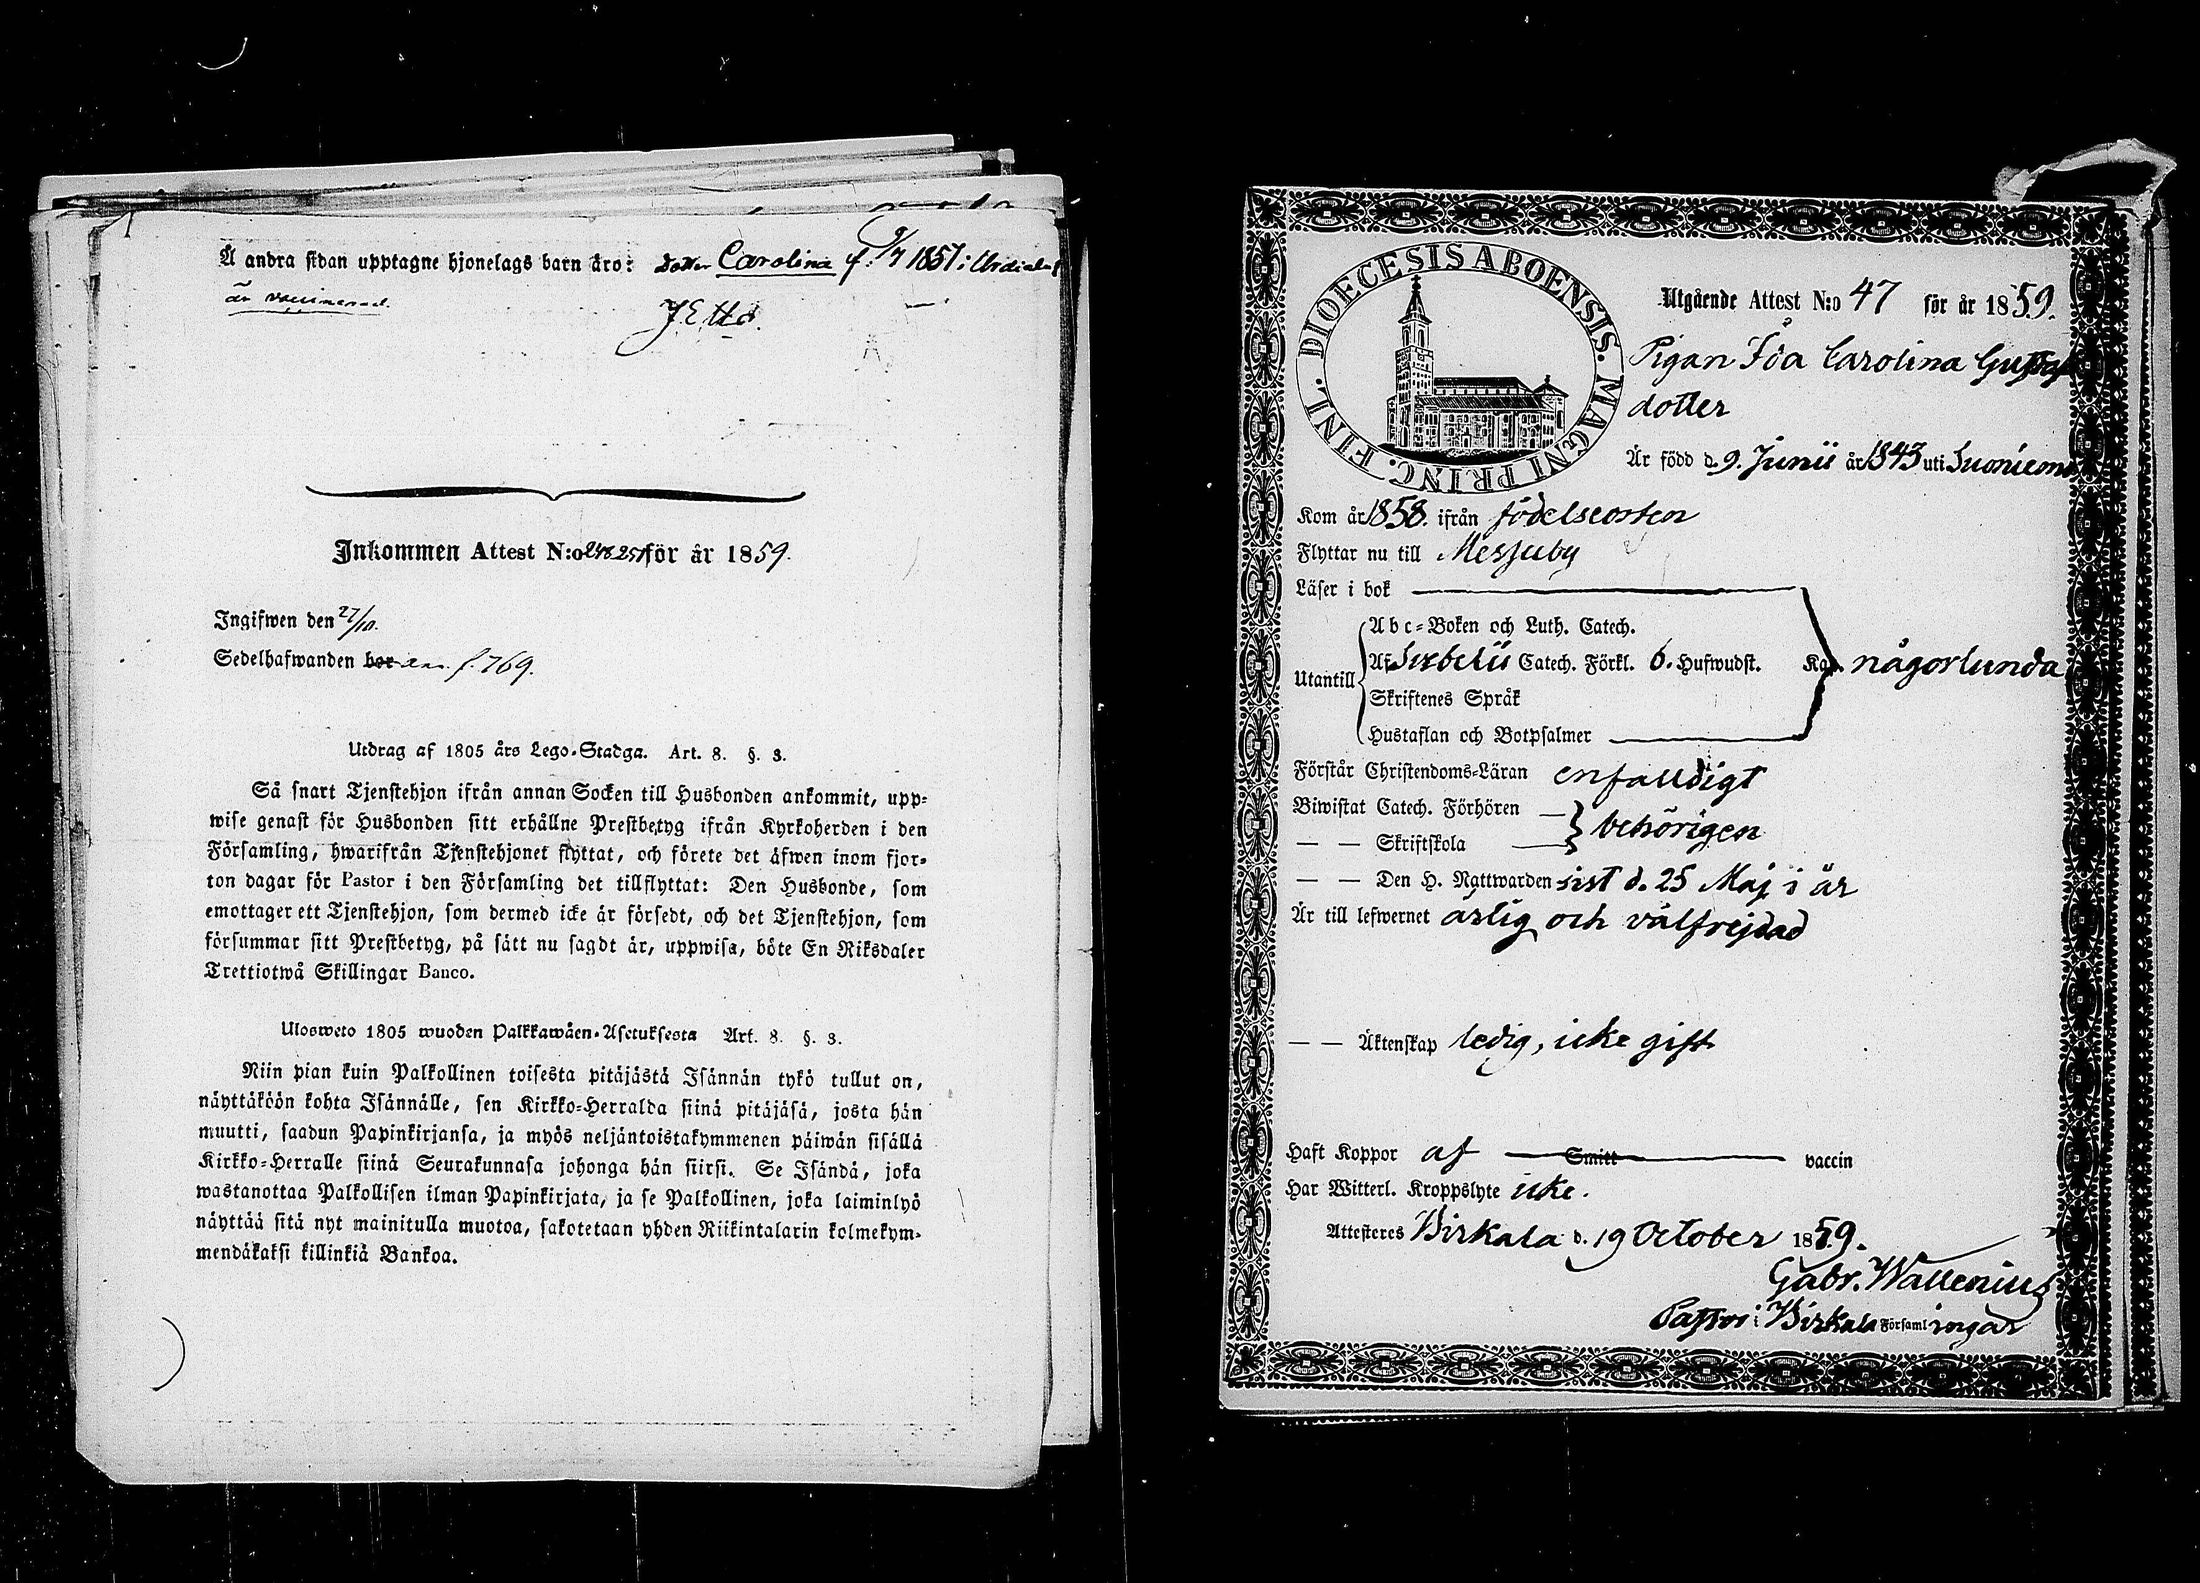 Å andra sidan upptagne hjonelags barn äro: dotter Carolina f. 9/7 1857 i Urdiala
är vaccinerad.
Inkommen Attest N:o 248 251 för år 1859.
Ingifwen den 27/10.
Sedelhafwanden bor an. f. 769.
Utdrag af 1805 års Lego-Stadga. Art. 8. §. 3.
Så snart Tjenstehjon ifrån annan Socken till Husbonden ankommit, upp-
wise genast för Husbonden sitt erhållne Prestbetyg ifrån Kyrkoherden i den
Församling, hwarifrån Tjenstehjonet flyttat, och förete det äfwen inom fjor-
ton dagar för Pastor i den Församling det tillflyttat: Den Husbonde, som
emottager ett Tjenstehjon, som dermed icke är försedt, och det Tjenstehjon, som
försummar sitt Prestbetyg, på sätt nu sagdt är, uppwisa, böte En Riksdaler
Trettiotwå Skillingar Banco.
Ulosweto 1805 wuoden Palkkawäen-Asetuksesta Art. 8. §. 3.
Niin pian kuin Palkollinen toisesta pitäjästä Isännän tykö tullut on,
näyttäköön kohta Isännälle, sen Kirkko-Herralda siinä pitäjäsä, josta hän
muutti, saadun Papinkirjansa, ja myös neljäntoistakymmenen päiwän sisällä
Kirkko-Herralle siinä Seurakunnasa johonga hän siirsi. Se Isändä, joka
wastanottaa Palkollisen ilman Papinkirjata, ja se Palkollinen, joka laiminlyö
näyttää sitä nyt mainitulla muotoa, sakotetaan yhden Riikintalarin kolmekym-
mendäkaksi killinkiä Bankoa.
DIOECESIS ABOENSIS. MAGNI PRINC. FINL.
Utgående Attest N:o 47 för år 1859.
Pigan Ida Carolina Gustafs
dotter
Är född d. 9. Junii år 1843 uti Suoniemi
Kom år 1858. ifrån födelseorten
Flyttar nu till Messuby
Läser i bok
Abc-Boken och Luth. Catech.
Utantill Af Svebelii Catech. Förkl. 6. Hufwudst. Kap. någorlunda
Skriftenes Språk
Hustaflan och Botpsalmer
Förstår Christendoms-Läran enfaldigt
Biwistat Catech. Förhören
— — Skriftskola behörigen
— — Den H. Nattwarden sist d. 25 Maj i år
Är till lefwernet ärlig och välfrejdad
— — Äktenskap ledig, icke gift
Haft Koppor af Smitt vaccin
Har Witterl. Kroppslyte icke.
Attesteres Birkala d. 19 October 1859.
Gabr. Wallenius
Pastor i Birkala Församlingar